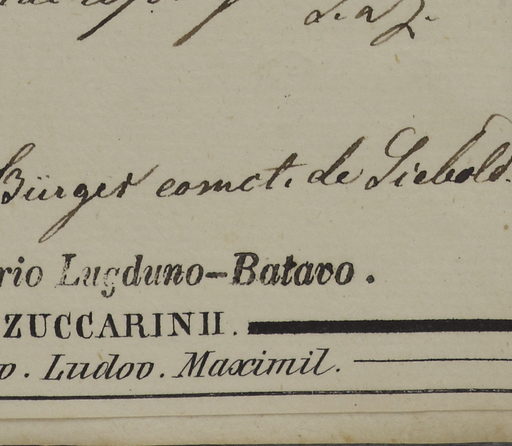 S. & Z.
Bürger comct. de Siebold.
rio Lugduno-Batavo.
ZUCCARINII.
v. Ludov. Maximil.